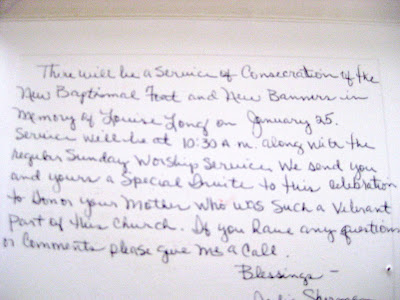 There will be a Service of Consecration of the
New Baptismal Font and New Banners in
Memory of Louise Long on January 25.
Service will be at 10:30 A.m. along with the
regular Sunday Worship Service. We send you
and yours a Special Invite to this celebration
to Honor your Mother who was Such a Vibrant
Part of this Church. If you have any questions
or Comments please give me a Call.
Blessings -